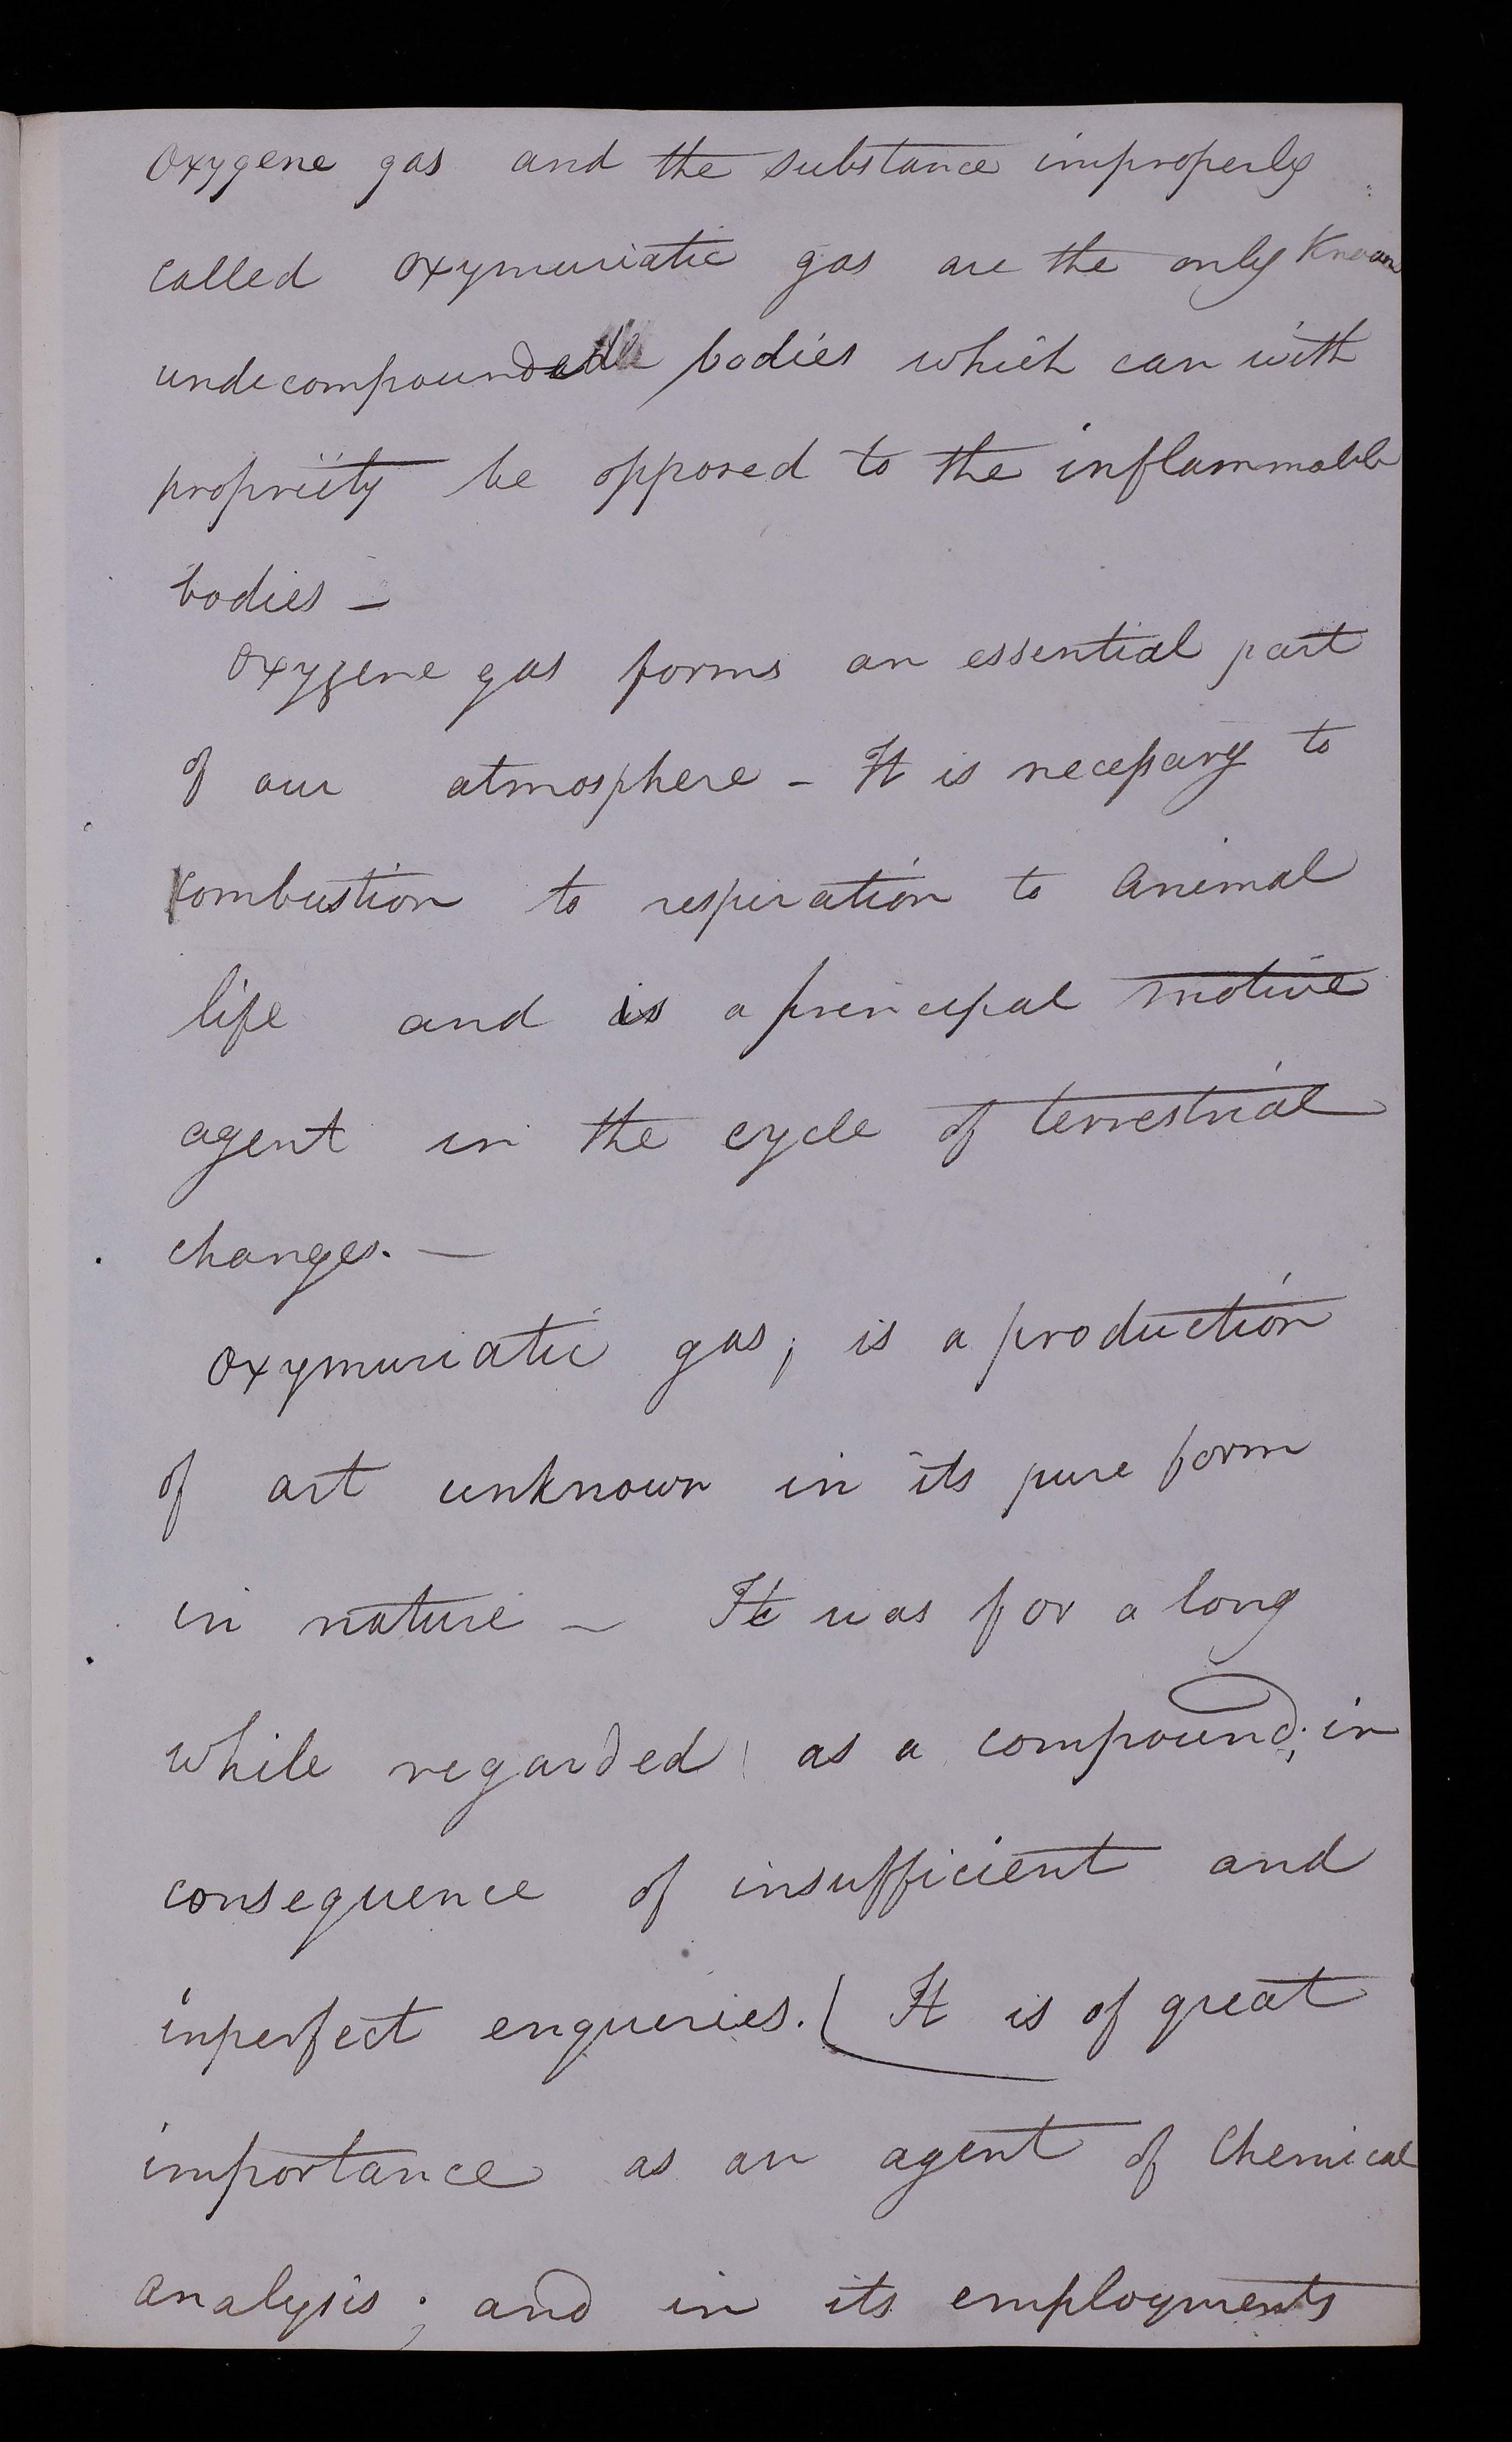 Oxygene gas and the substance improperly
called oxymuriatic gas are the only known
undecompounded bodies which can with
propriety be opposed to the inflammable
bodies -
Oxygene gas forms an essential part
of our atmosphere - It is necessary to
combustion to respiration to animal
life and is a principal motive
agent in the cycle of terrestrial
changes. -
Oxymuriatic gas; is a production
of art unknown in its pure form
in nature - It was for a long
while regarded as a compound; in
consequence of insufficient and
inperfect enqueries. ( It is of great
importance as an agent of Chemical
analysis; and in its employments